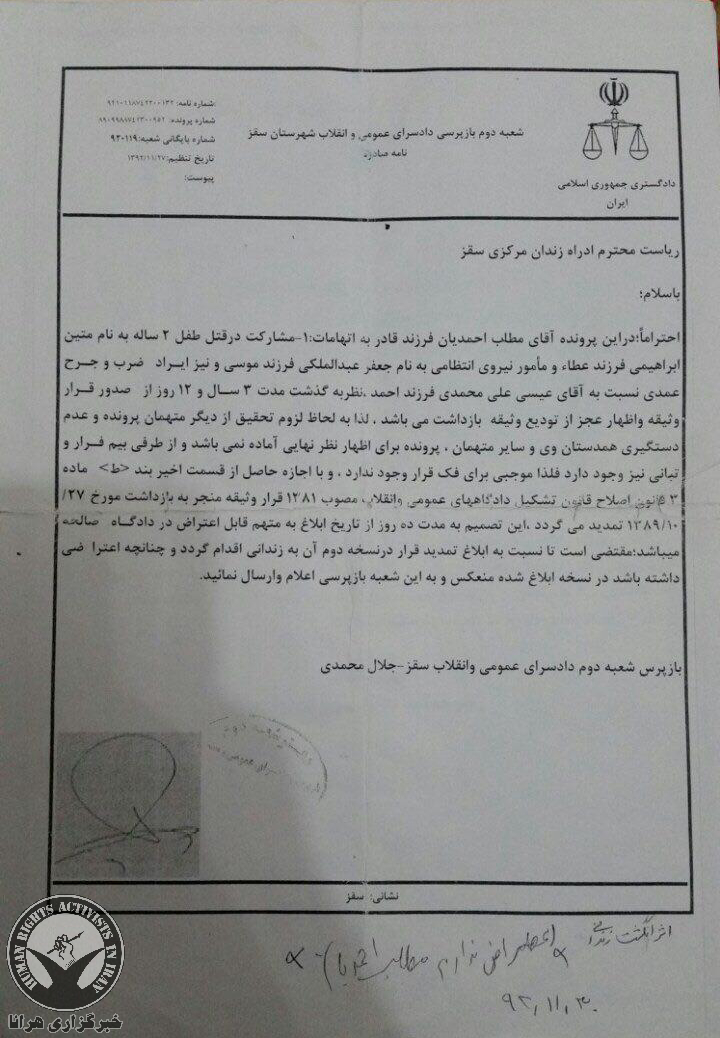 شماره نامه: ۹۲۱۰۱۱۸۷۴۲۲۰۰۱۳۲
شماره پرونده: ۸۹۰۹۹۸۱۸۷۴۲۳۰۰۹۵۲
شماره بایگانی شعبه: ۹۳۰۱۱۹
تاریخ تنظیم: ۱۳۹۲/۱۱/۲۷
پیوست:
شعبه دوم بازپرسی دادسرای عمومی و انقلاب شهرستان سقز
نامه صادره
دادگستری جمهوری اسلامی
ایران
ریاست محترم ادراه زندان مرکزی سقز
باسلام؛
احتراماً؛دراین پرونده آقای مطلب احمدیان فرزند قادر به اتهامات:۱-مشارکت درقتل طفل ۲ ساله به نام متین
ابراهیمی فرزند عطاء و مأمور نیروی انتظامی به نام جعفر عبدالملکی فرزند موسی و نیز ایراد ضرب و جرح
عمدی نسبت به آقای عیسی علی محمدی فرزند احمد ،نظربه گذشت مدت ۳ سال و ۱۲ روز از صدور قرار
وثیقه واظهار عجز از تودیع وثیقه بازداشت می باشد ، لذا به لحاظ لزوم تحقیق از دیگر متهمان پرونده و عدم
دستگیری همدستان وی و سایر متهمان ، پرونده برای اظهار نظر نهایی آماده نمی باشد و از طرفی بیم فرار و
تبانی نیز وجود دارد فلذا موجبی برای فک قرار وجود ندارد ، و با اجازه حاصل از قسمت اخیر بند <ط> ماده
۳ قانون اصلاح قانون تشکیل دادگاههای عمومی وانقلاب مصوب ۱۲۸۱ قرار وثیقه منجر به بازداشت مورخ ۲۷/
۱۳۸۹/۱۰ تمدید می گردد ،این تصمیم به مدت ده روز از تاریخ ابلاغ به متهم قابل اعتراض در دادگاه صالحه
میباشد؛مقتضی است تا نسبت به ابلاغ تمدید قرار درنسخه دوم آن به زندانی اقدام گردد و چنانچه اعترا ضی
داشته باشد در نسخه ابلاغ شده منعکس و به این شعبه بازپرسی اعلام وارسال نمائید.
بازپرس شعبه دوم دادسرای عمومی وانقلاب سقز-جلال محمدی
نشانی: سقز
اثر انگشت زندانی
اعتراض ندارم مطلب احمدیان
۹۲,۱۱,۳۰
HUMAN RIGHTS ACTIVISTS IN IRAN
خبرگزاری هرانا